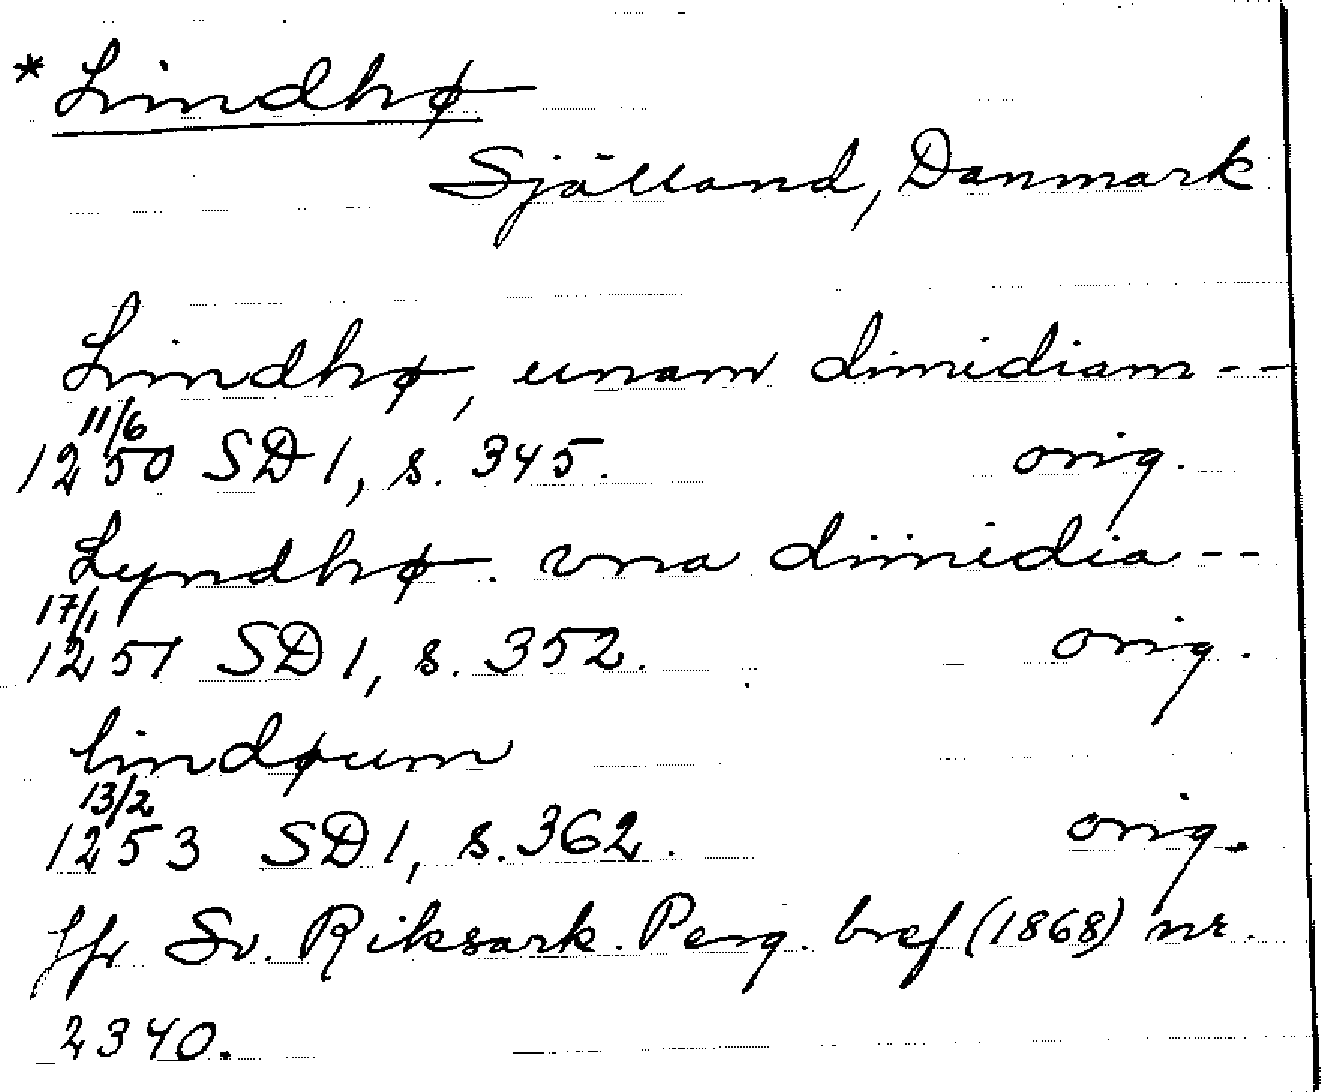 * Lindhø
Själland, Danmark
Lindhø, unam dimidiam --
11/6
1250 SD 1, s. 345. orig.
Lyndhø. vna dimidia --
17/1
1251 SD 1, s. 352. orig.
lindøum
13/2
1253 SD 1, s. 362. orig.
Jfr Sv. Riksark. Perg. bref (1868) nr.
2340.